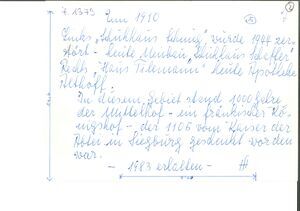 7.1373 Um 1910
Links "Schuhhaus Schmig" wurde 1944 zer-
stört - heute Neubau "Schuhhaus Scheffer"
Rechts "Haus Tillmann" heute Apotheke
Althoff.
In diesem Gebiet stand 1000 Jahre
der Mühlelhof - ein fränkischer Kö-
nigshof - der 1106 vom Kaiser der
Abtei in Siegburg geschenkt worden
war.
- 1983 erhalten -